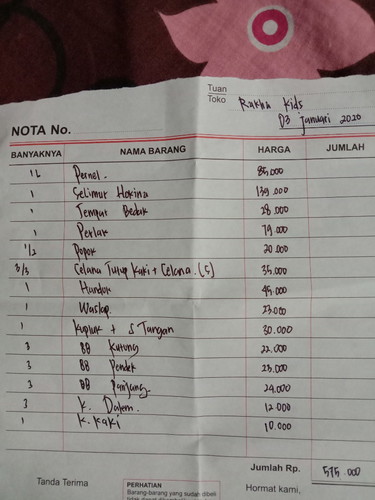 Tuan
Toko Rakha Kids
03 Januari 2020
NOTA No.
BANYAKNYA NAMA BARANG HARGA JUMLAH
Pernel. 85.000
1 Selimut Hokina 139.000
1 Tempat Bedak 28.000
1 Perlak 79.000
1/2 Popok 20.000
3/3 Celana Tutup Kaki + Celana. (S) 35.000
1 Handuk 49.000
1 Waslap. 23.000
1 Kupluk + S Tangan 30.000
3 BB Kutung 22.000
3 BB Pendek 23.000
3 BB Panjang 24.000
3 K. Dalem. 12.000
1 K. Kaki 10.000
Jumlah Rp. 575.000
Tanda Terima
PERHATIAN
Barang-barang yang sudah dibeli
Hormat kami,